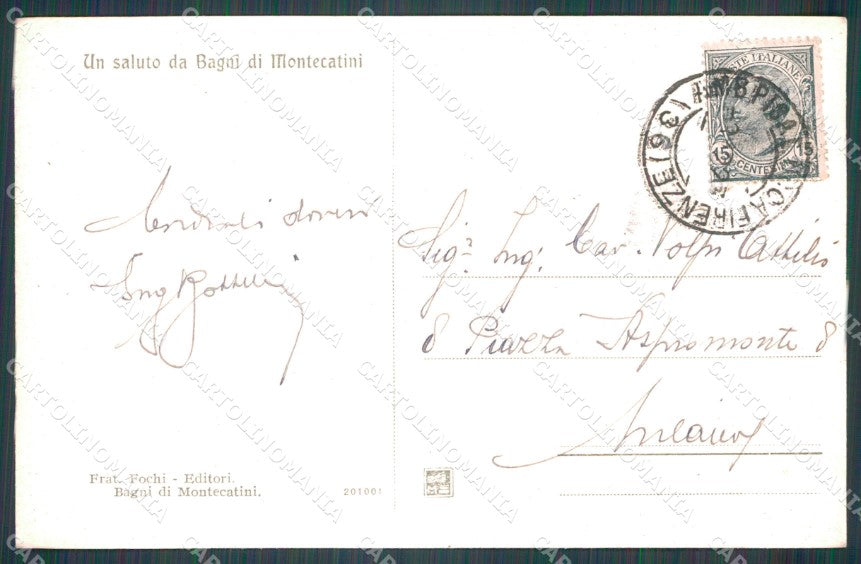 Un saluto da Bagni di Montecatini
POSTE ITALIANE
15 15
CENTESIMI
PISA
LUCCA FIRENZE (96)
Cordiali doveri
Ing
Sigr. Ing. Cav. Volpi Attilio
8 Piazza Aspromonte 8
Milano
Frat. Fochi - Editori.
Bagni di Montecatini.
201001
CARTOLINOMANIA